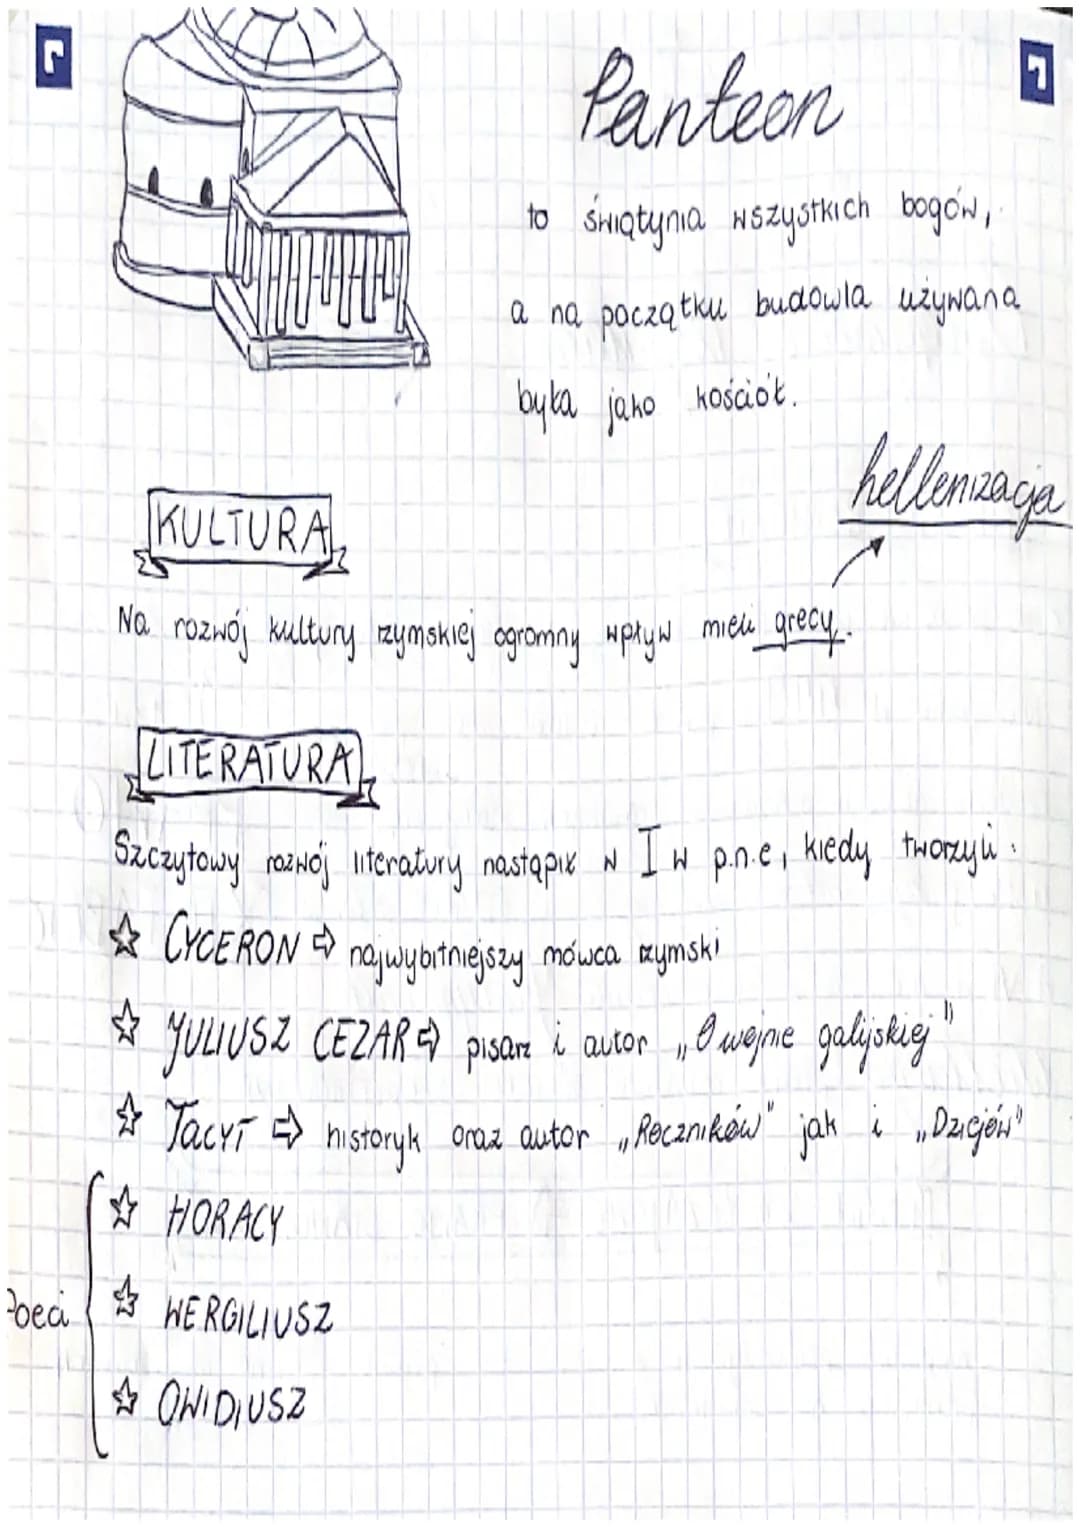 Panteon
to świątynia wszystkich bogów,
a na początku budowla używana
była jako kościół.
hellenizacja
KULTURA
Na rozwój kultury rzymskiej ogromny wpływ mieli grecy.
LITERATURA
Szczytowy rozwój literatury nastąpił w I w p.n.e, kiedy tworzyli:
☆ CYCERON ⇨ najwybitniejszy mówca rzymski
☆ JULIUSZ CEZAR ⇨ pisarz i autor „O wojnie galijskiej"
☆ TACYT ⇨ historyk oraz autor „Roczników" jak i „Dziejów"
☆ HORACY
Poeci
☆ WERGILIUSZ
☆ OWIDIUSZ